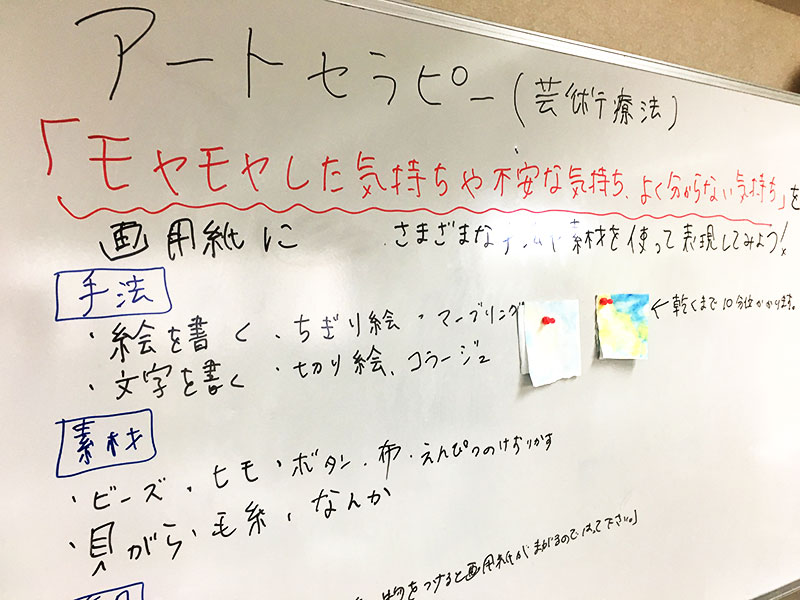 アートセラピー(芸術療法)
「モヤモヤした気持ちや不安な気持ち、よく分からない気持ち」を
画用紙に さまざまな や素材を使って表現してみよう!
手法
・絵を書く ・ちぎり絵 ・マーブリング ←乾くまで10分位かかります。
・文字を書く ・切り絵、コラージュ
素材
・ビーズ・ヒモ・ボタン・布・えんぴつのけずりかす
・貝がら・毛糸・なんか
物をつけると画用紙がまがるので 下さい。」